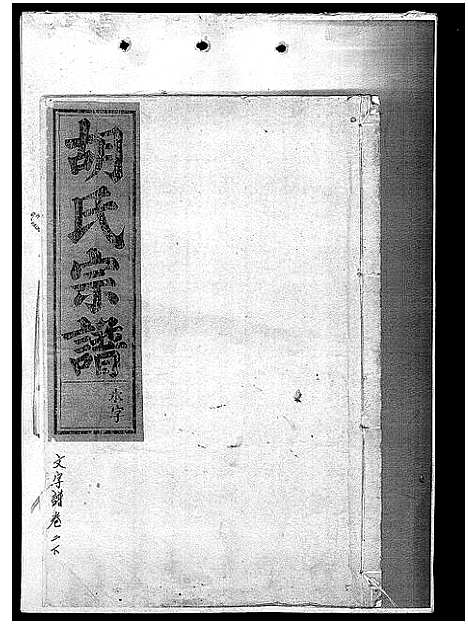 胡氏宗譜
永字
文字譜卷二下